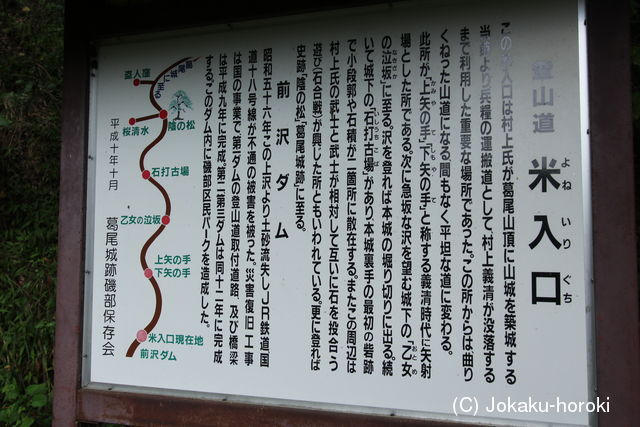 登山道 米入口
よね いり ぐち
この米入口は村上氏が葛尾山頂に山城を築城する
当時より兵糧の運搬道として、村上義清が没落する
まで利用した重要な場所であった。この所からは曲り
くねった山道になる。間もなく平坦な道に変わる。
此所が、「上矢の手」「下矢の手」と称する義清時代に矢射
場とした所である。次に急坂な沢を望む城下の、「乙女
の泣坂」に至る。沢を登れば本城の堀り切りに出る。続
いて城下の「石打古場」があり本城裏手の最初の砦跡
で小段郭や石積が二箇所に散在する。またこの周辺は
村上氏の武士と武士が相対して互いに石を投合う
遊び(石合戦)が興した所ともいわれている。更に登れば
史跡「陰の松」「葛尾城跡」に至る。
前沢ダム
昭和五十六年この上沢より土砂流失しJR鉄道国
道十八号線が不通の被害を被った。災害復旧工事
は国の事業で、第一ダムの登山道取付道路、及び橋梁
は平成九年に完成。第二第三ダムは同十二年に完成
する。このダム内に磯部区民パークを造成した。
葛尾城に至る
陰の松
桜清水
石打古場
乙女の泣坂
上矢の手
下矢の手
米入口現在地
前沢ダム
平成十年十月
葛尾城跡磯部保存会
(C) Jokaku-horoki